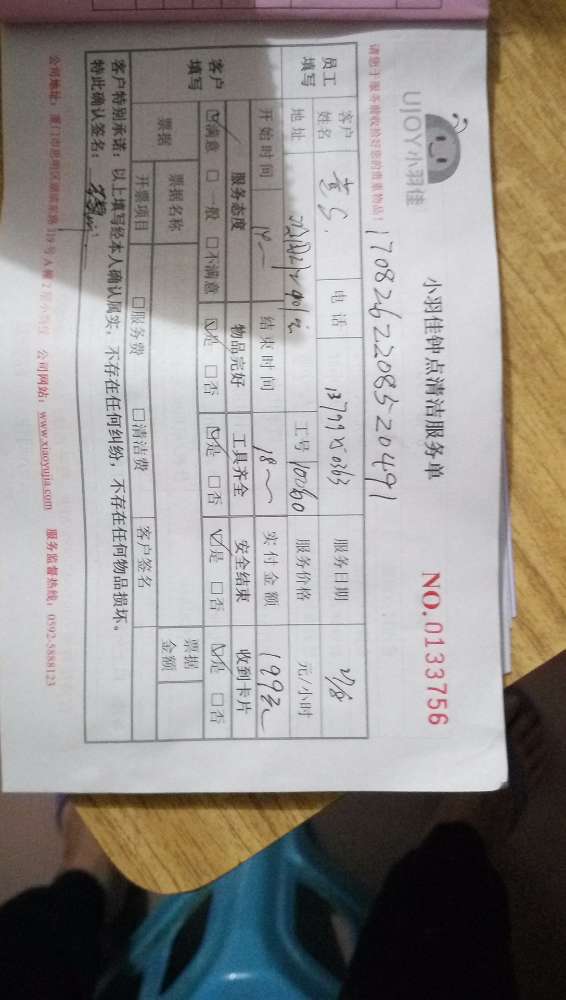 UJOY小羽佳
小羽佳钟点清洁服务单
NO.0133756
请您于服务前收拾好您的贵重物品!
1708262208520491
员工填写
客户姓名 黄 电话 服务日期
地址 工号 10060 服务价格 元/小时
开始时间 14 结束时间 18 实付金额 199元
客户填写
服务态度 物品完好 工具齐全 安全结束 收到卡片
☑满意 □一般 □不满意 ☑是 □否 ☑是 □否 ☑是 □否 ☑是 □否
票据 票据名称 票据金额
开票项目 □服务费 □清洁费 客户签名
客户特别承诺：以上填写经本人确认属实，不存在任何纠纷，不存在任何物品损坏。
特此确认签名：
公司地址：厦门市思明区 公司网站：www.xiaoyujia.com 服务监督热线：0592-5888123